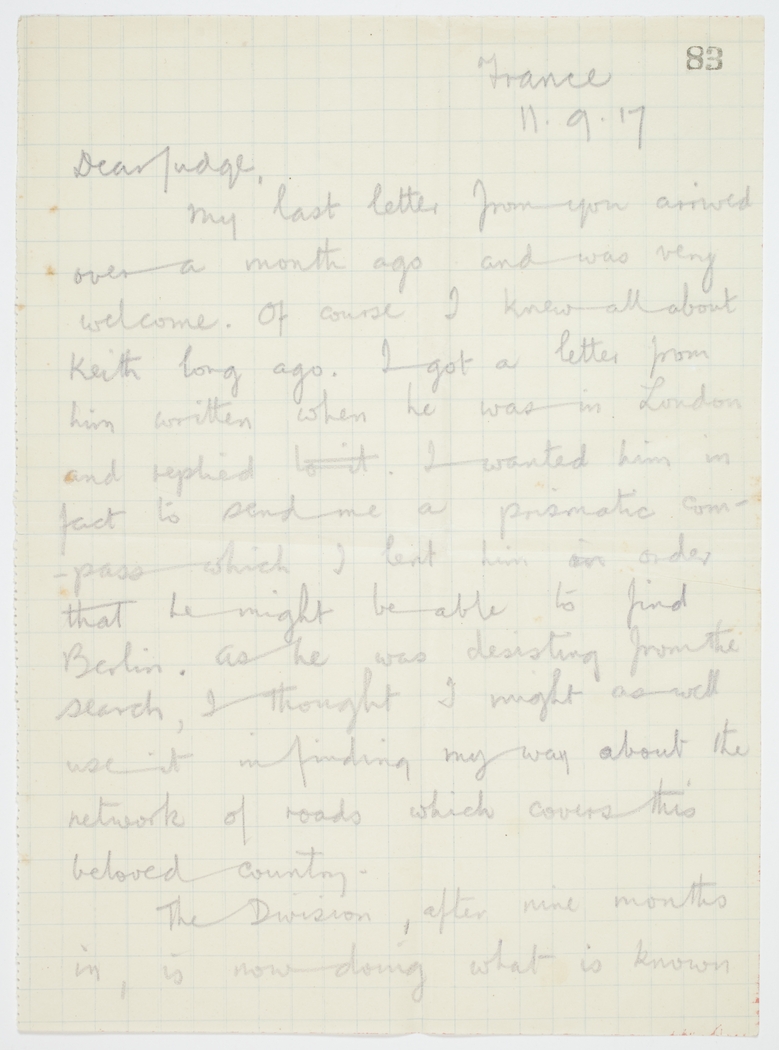 83
France
11.9.17
Dear Judge,
My last letter from you arrived
over a month ago and was very
welcome. Of course I knew all about
Keith long ago. I got a letter from
him written when he was in London
and replied to it. I wanted him in
fact to send me a prismatic com-
-pass which I lent him in order
that he might be able to find
Berlin. As he was desisting from the
search, I thought I might as well
use it in finding my way about the
network of roads which covers this
beloved country.
The Division, after nine months
in, is now doing what is known